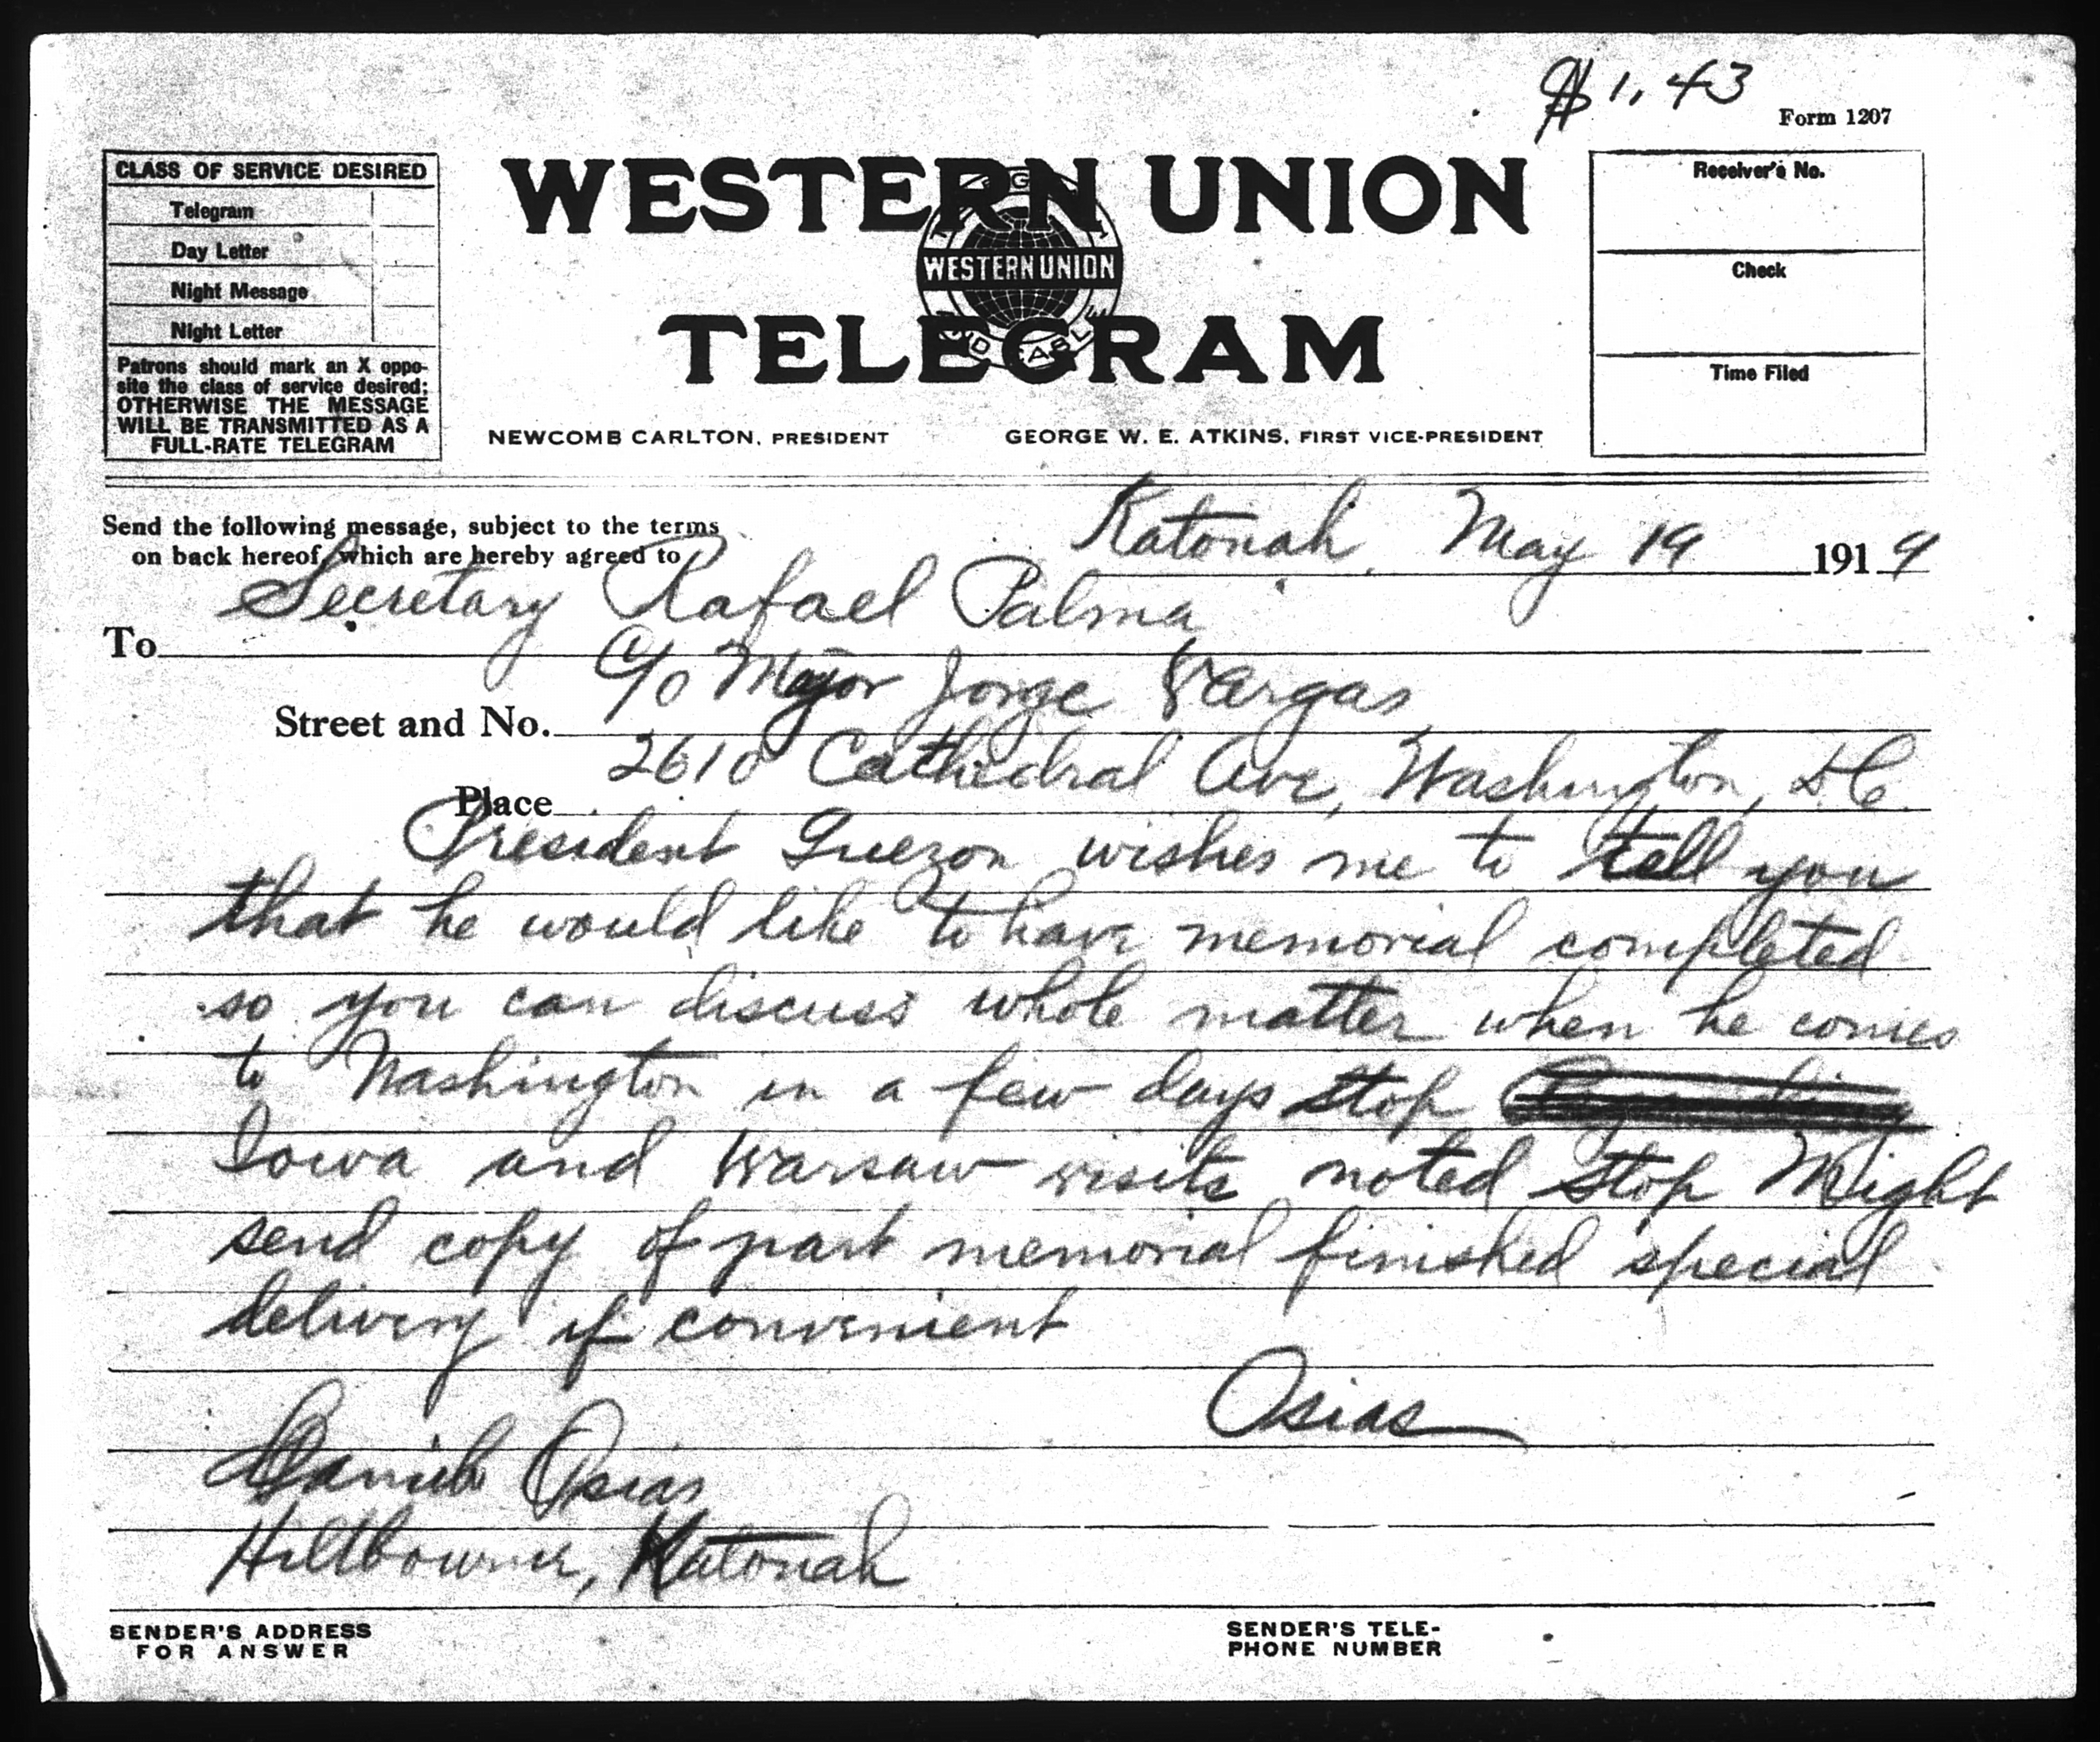 $1.43
Form 1207
CLASS OF SERVICE DESIRED
Telegram
Day Letter
Night Message
Night Letter
Patrons should mark an X oppo-
site the class of service desired:
OTHERWISE THE MESSAGE
WILL BE TRANSMITTED AS A
FULL-RATE TELEGRAM
WESTERN UNION
WESTERN UNION
TELEGRAM
NEWCOMB CARLTON, PRESIDENT
GEORGE W. E. ATKINS, FIRST VICE-PRESIDENT
Receiver's No.
Check
Time Filed
Send the following message, subject to the terms
on back hereof, which are hereby agreed to
Katonah, May 19 1919
To Secretary Rafael Palma
Street and No. C/o Major Jorge Vargas,
Place 2610 Cathedral Ave, Washington, D.C.
President Quezon wishes me to tell you
that he would like to have memorial completed
so you can discuss whole matter when he comes
to Washington in a few days stop
Iowa and Warsaw visits noted stop Might
send copy of part memorial finished special
delivery if convenient
Osias
Osias
Katonah
SENDER'S ADDRESS
FOR ANSWER
SENDER'S TELE-
PHONE NUMBER